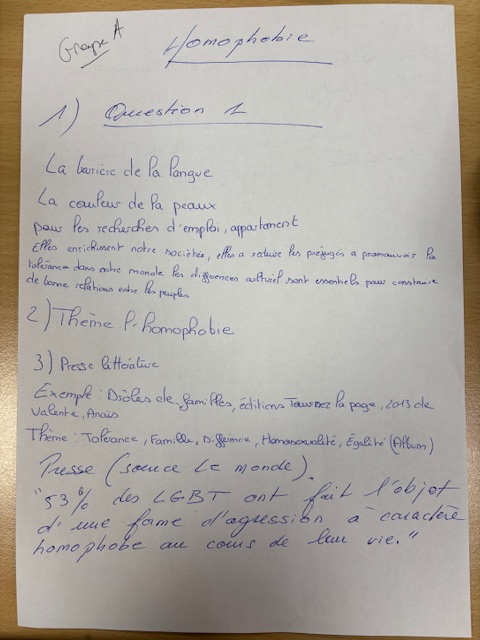 Groupe A
Homophobie
1) Question 1
La barrière de la langue
La couleur de la peaux
pour les recherches d'emploi, appartement
Elles enrichissent notre sociétés, elles a reduire les préjugés a promouvoir la
tolérance dans notre monde les différences culturel sont essentiels pour construire
de bonne relations entre les peuples
2) Thème l'homophobie
3) Presse littérative
Exemple : Drôles de familles, éditions Tournez la page, 2013 de
Valente, Anaïs
Thème : Tolérance, Famille, Différence, Homosexualité, Égalité (Album)
Presse (source Le monde).
"53% des LGBT ont fait l'objet
d'une forme d'agression à caractère
homophobe au cours de leur vie."